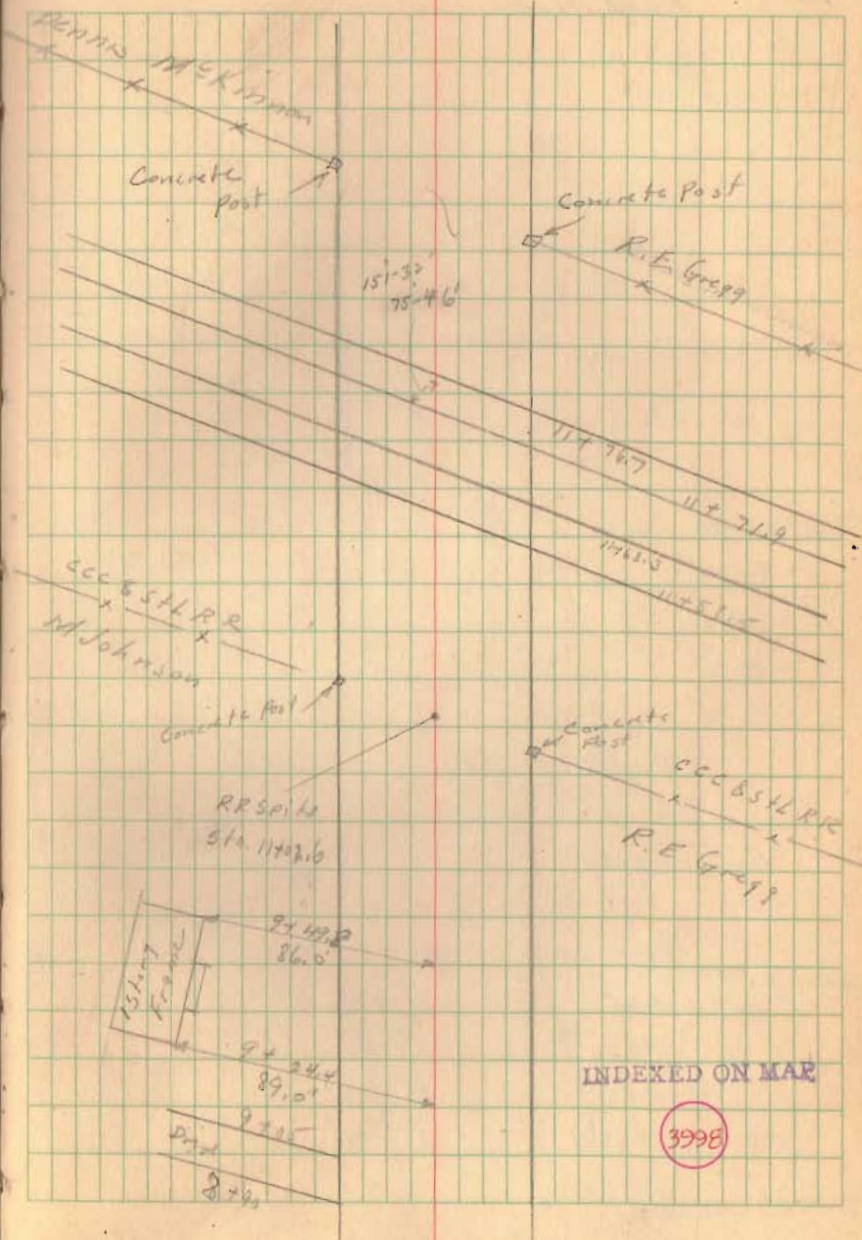 Dennis McKinnon
Concrete
post
Concrete Post
R.E. Gregg
151-32'
75-46'
11+76.7
11+71.9
11+63.3
11+58.5
CCC & StL RR
M Johnson
Concrete Post
Concrete
Post
CCC & StL RR
R.E Gregg
RR Spike
Sta. 11+02.6
9+49.8
86.0'
1 Story
Frame
9+24.4
89.0'
9+05
Drive
8+90
INDEXED ON MAP
3998